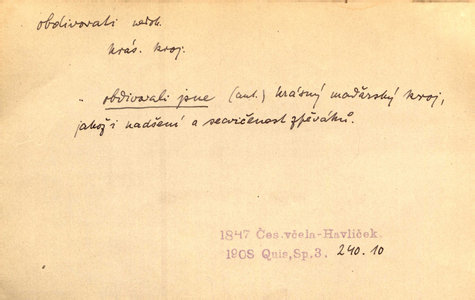 obdivovati nedok.
krás. kroj.
obdivovali jsme (ant.) krásný maďarský kroj,
jakož i nadšení a secvičenost zpěváků.
1847 Čes.včela-Havlíček
1908 Quis,Sp.3. 240.10